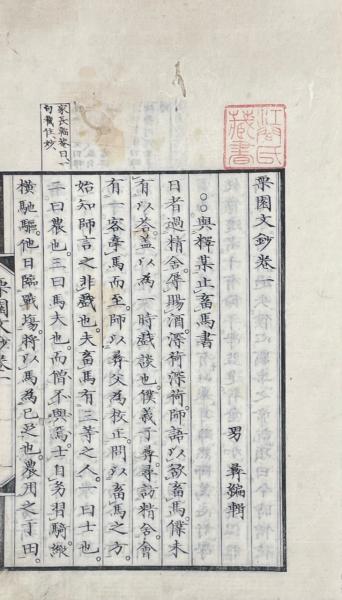 氏藏書
栗園文鈔卷一
男 彝編輯
○○與釋某止畜馬書
日者過精舍辱賜酒深荷深荷師語以欲畜馬僕未
有以荅盖以為一時戲談也僕義子尋尋訪精舍會
有一客牽馬而至師以尋父為校正問以畜馬之方
始知師言之非戲也夫畜馬有三等之人一曰士也
二曰農也三曰馬夫也而僧不與焉士習騎縱
橫馳驅他日臨戰塲將以馬為己足也農用之于田
家長曰一
句截住妙
栗園文鈔卷一